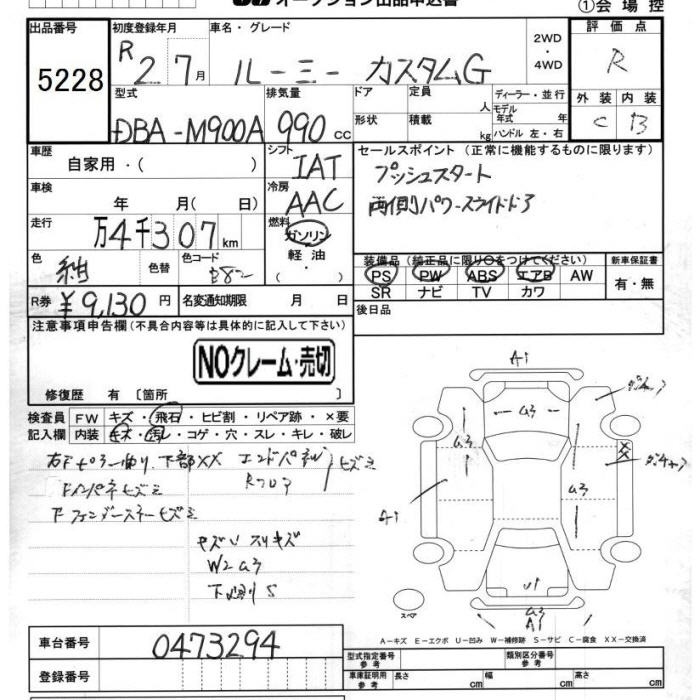 オークション出品申込書
①会場控
出品番号 5228
初度登録年月 R2 7月
車名・グレード ルーミー カスタムG
2WD・4WD
評価点 R
外装 C 内装 B
型式 DBA-M900A
排気量 990cc
ドア 形状
定員 人
積載 kg
ディーラー・並行
モデル年式 年
ハンドル 左・右
車歴 自家用・( )
シフト IAT
セールスポイント(正常に機能するものに限ります)
プッシュスタート
両側パワースライドドア
車検 年 月( 日)
冷房 AAC
走行 万4千307km
燃料 ガソリン
軽油
( )
色 紺 色替
色コード
装備品(純正品に限り○をつけてください)
PS PW ABS エアB AW
SR ナビ TV カワ
新車保証書
有・無
R券 ¥9,130円
名変通知期限 月 日
後日品
注意事項申告欄(不具合内容等は具体的に記入して下さい)
NOクレーム・売切
修復歴 有〔箇所 〕
検査員 FW キズ・飛石・ヒビ割・リペア跡・×要
記入欄 内装 キズ・汚レ・コゲ・穴・スレ・キレ・破レ
下部XX エンドパネル
キズU スリキズ
W2 U3
A1
U3
U3
U3
A1
XX
U1
U3
A1
スペア
A-キズ E-エクボ U-凹み W-補修跡 S-サビ C-腐食 XX-交換済
車台番号 0473294
登録番号
型式指定番号 参考
類別区分番号 参考
車庫証明用 参考 長さ cm 幅 cm 高さ cm